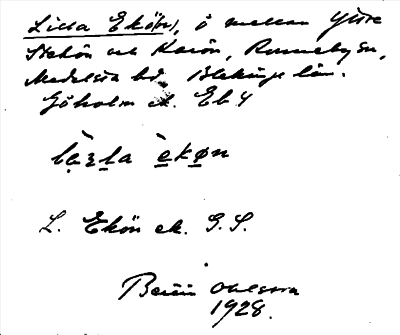 Lilla Ekö(n), ö mellan Yttre
Stekön och Karön, Ronneby sn,
Medelsta hd, Blekinge län.
Göholm ek. Eb 4
ek��n
L. Ekön ek. G.S.
Ohlsson
1928.